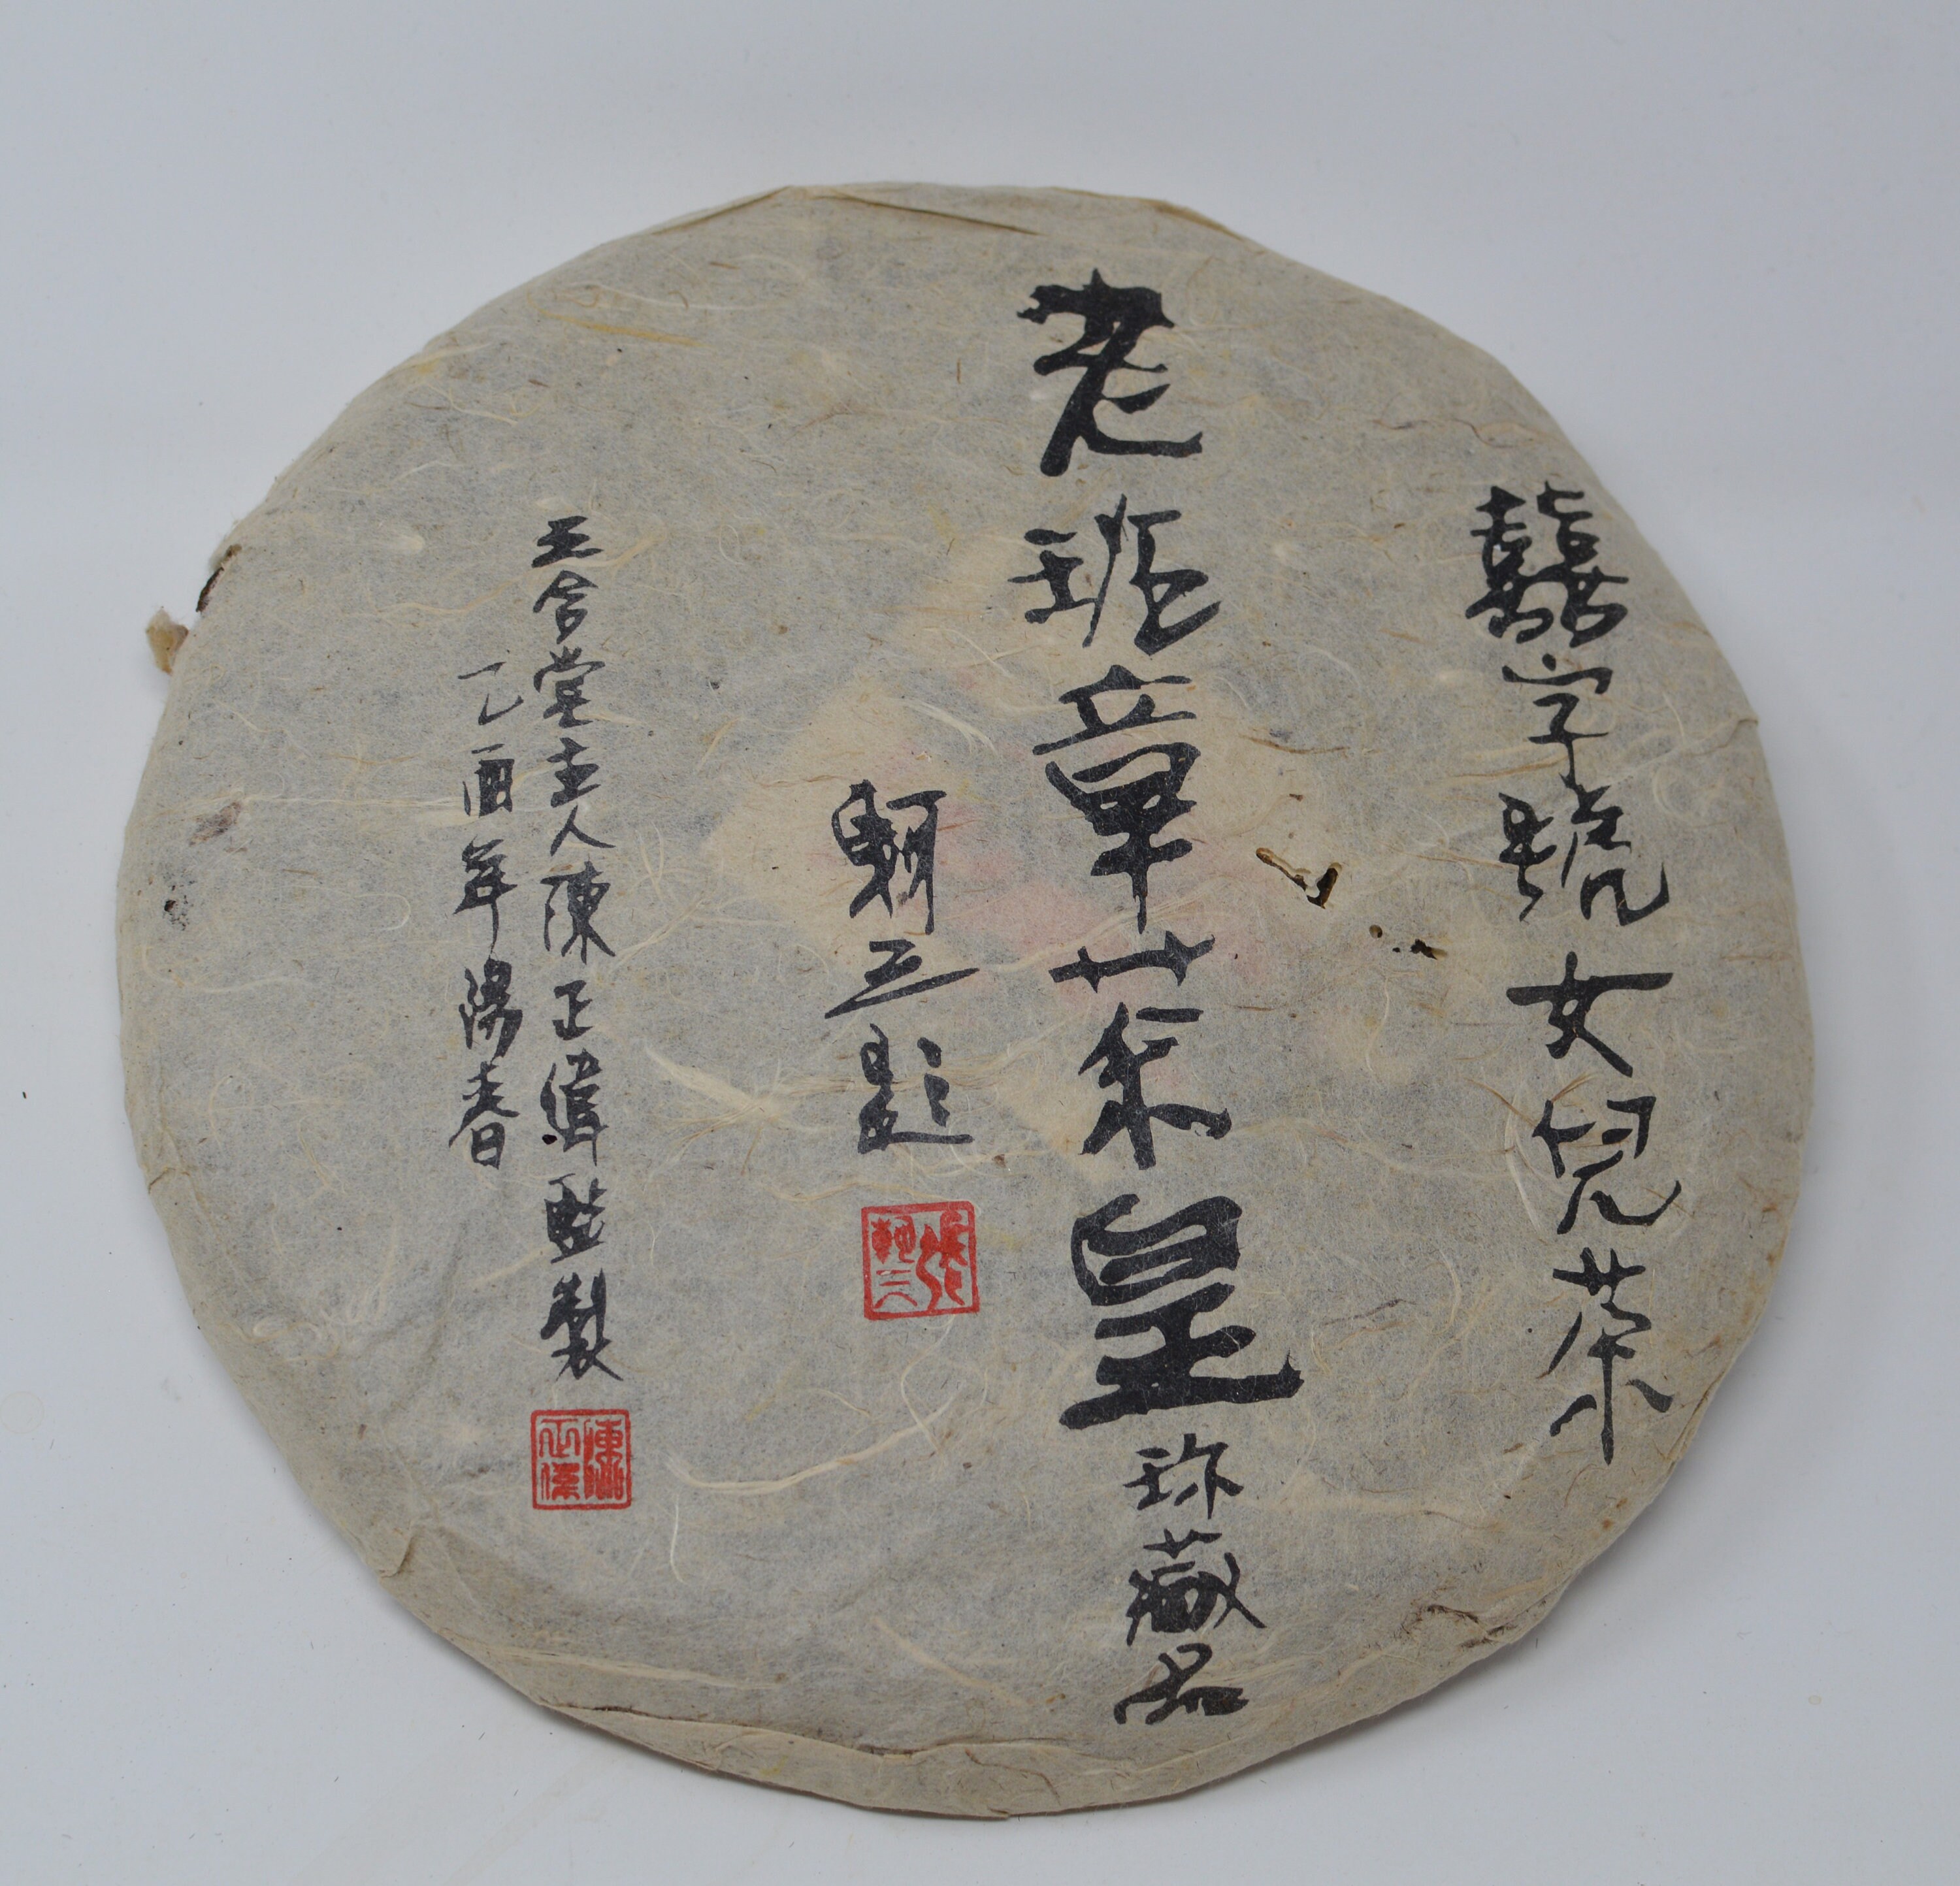 囍字號女兒茶
老班章茶皇珍藏品
三題
三合堂主人陳正偉監製
乙酉年陽春